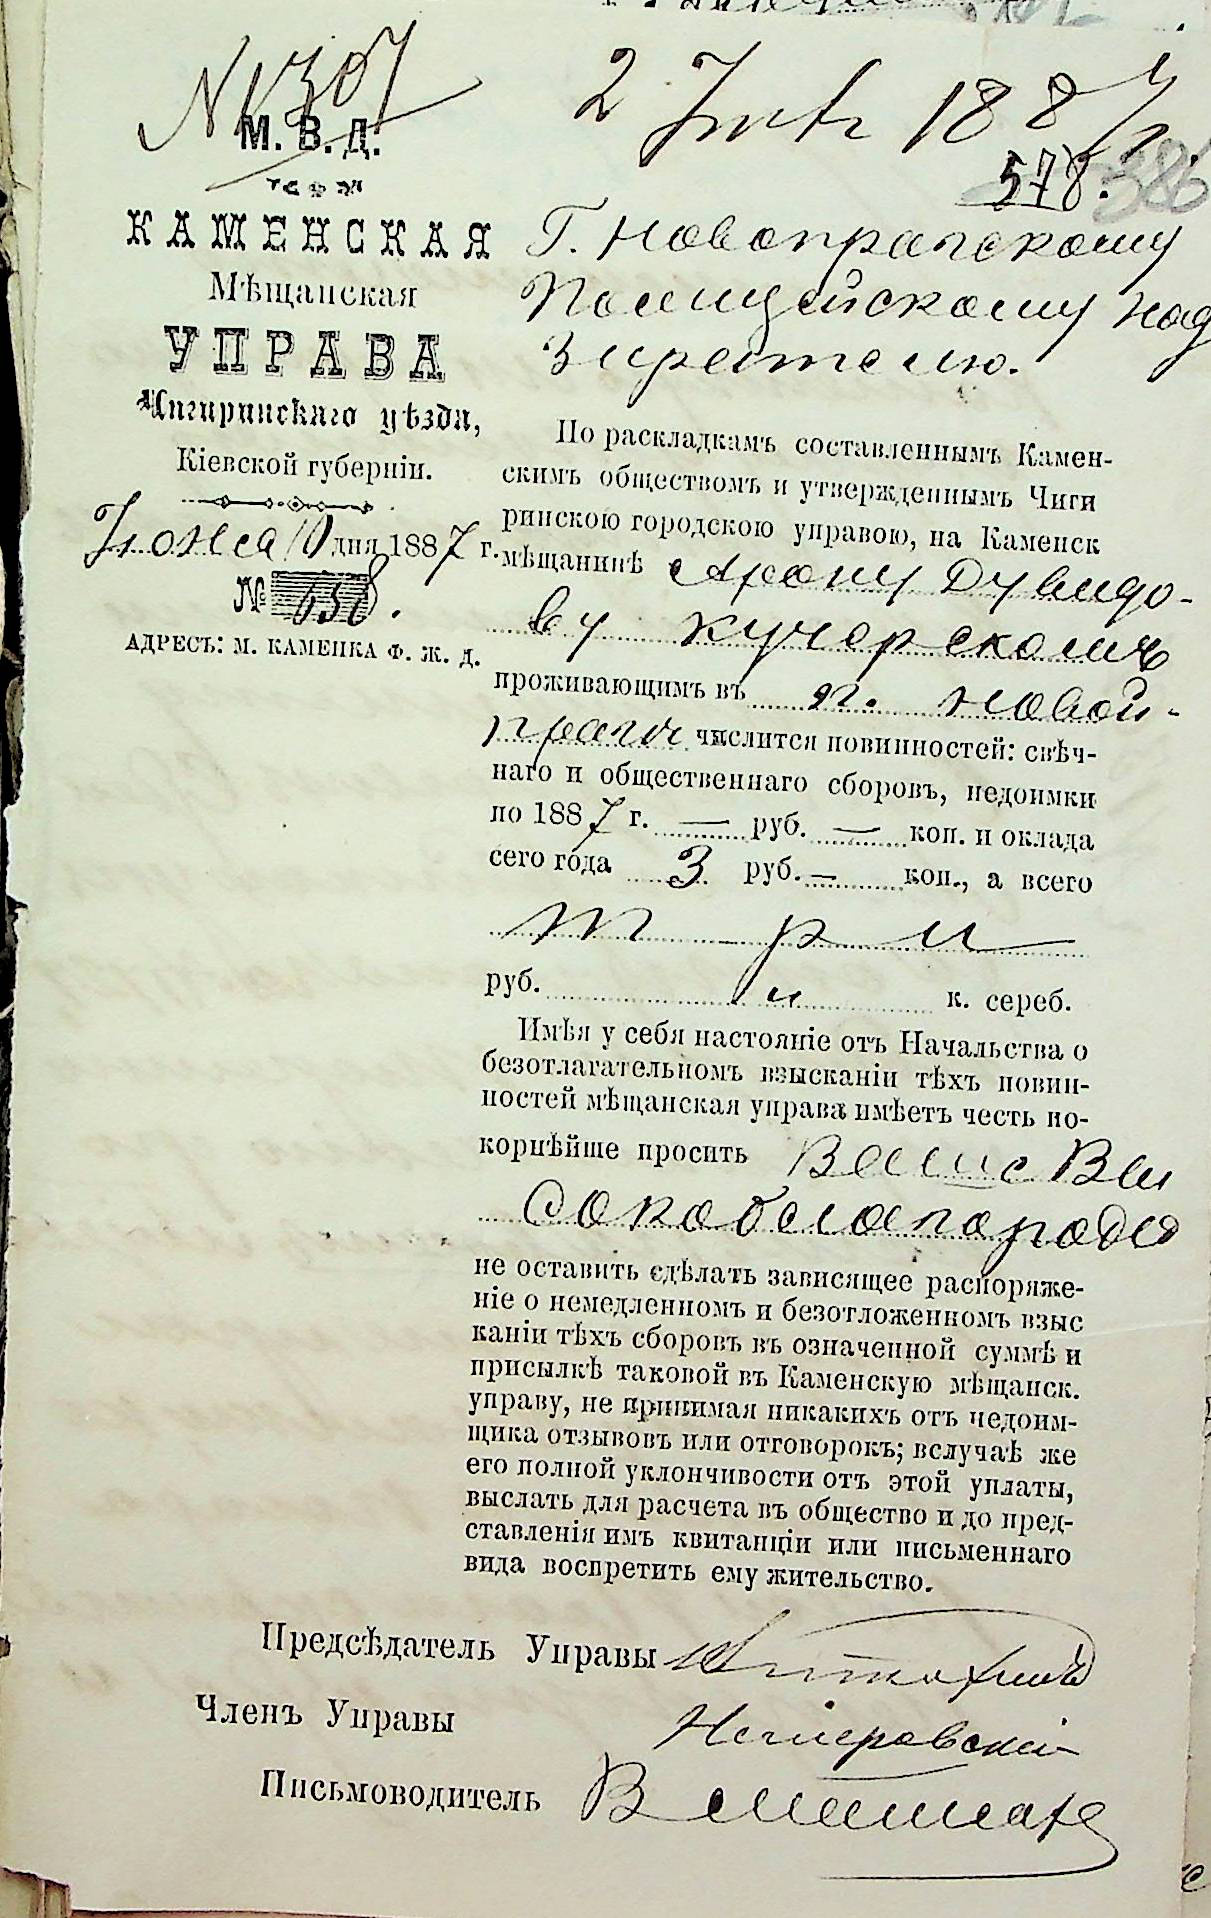 № 1307
2 Іюля 1887
578. 386
М. В. Д.
КАМЕНСКАЯ
Мѣщанская
УПРАВА
Чигиринскаго уѣзда,
Кіевской губерніи.
Іюня 10 дня 1887 г.
№ 658.
АДРЕСЪ: М. КАМЕНКА Ф. Ж. Д.
Г. Новопрагскому
Полицейскому Над
зирателю.
По раскладкамъ составленнымъ Камен-
скимъ обществомъ и утвержденнымъ Чиги
ринскою городскою управою, на Каменск
мѣщанинѣ Арону Дувидо-
ву Кучерскомъ
проживающимъ въ п. Новой-
Праги числится повинностей: свѣч-
наго и общественнаго сборовъ, недоимки
по 1887 г. — руб. — коп. и оклада
сего года 3 руб. — коп., а всего
три
руб. и к. сереб.
Имѣя у себя настояніе отъ Начальства о
безотлагательномъ взысканіи тѣхъ повин-
ностей мѣщанская управа имѣетъ честь по-
корнѣйше просить Ваше Вы
сокоблагородіе
не оставить сдѣлать зависящее распоряже-
ніе о немедленномъ и безотложенномъ взыс
каніи тѣхъ сборовъ въ означенной суммѣ и
присылкѣ таковой въ Каменскую мѣщанск.
управу, не принимая никакихъ отъ недоим-
щика отзывовъ или отговорокъ; вслучаѣ же
его полной уклончивости отъ этой уплаты,
выслать для расчета въ общество и до пред-
ставленія имъ квитанціи или письменнаго
вида воспретить ему жительство.
Предсѣдатель Управы
Членъ Управы
Письмоводитель